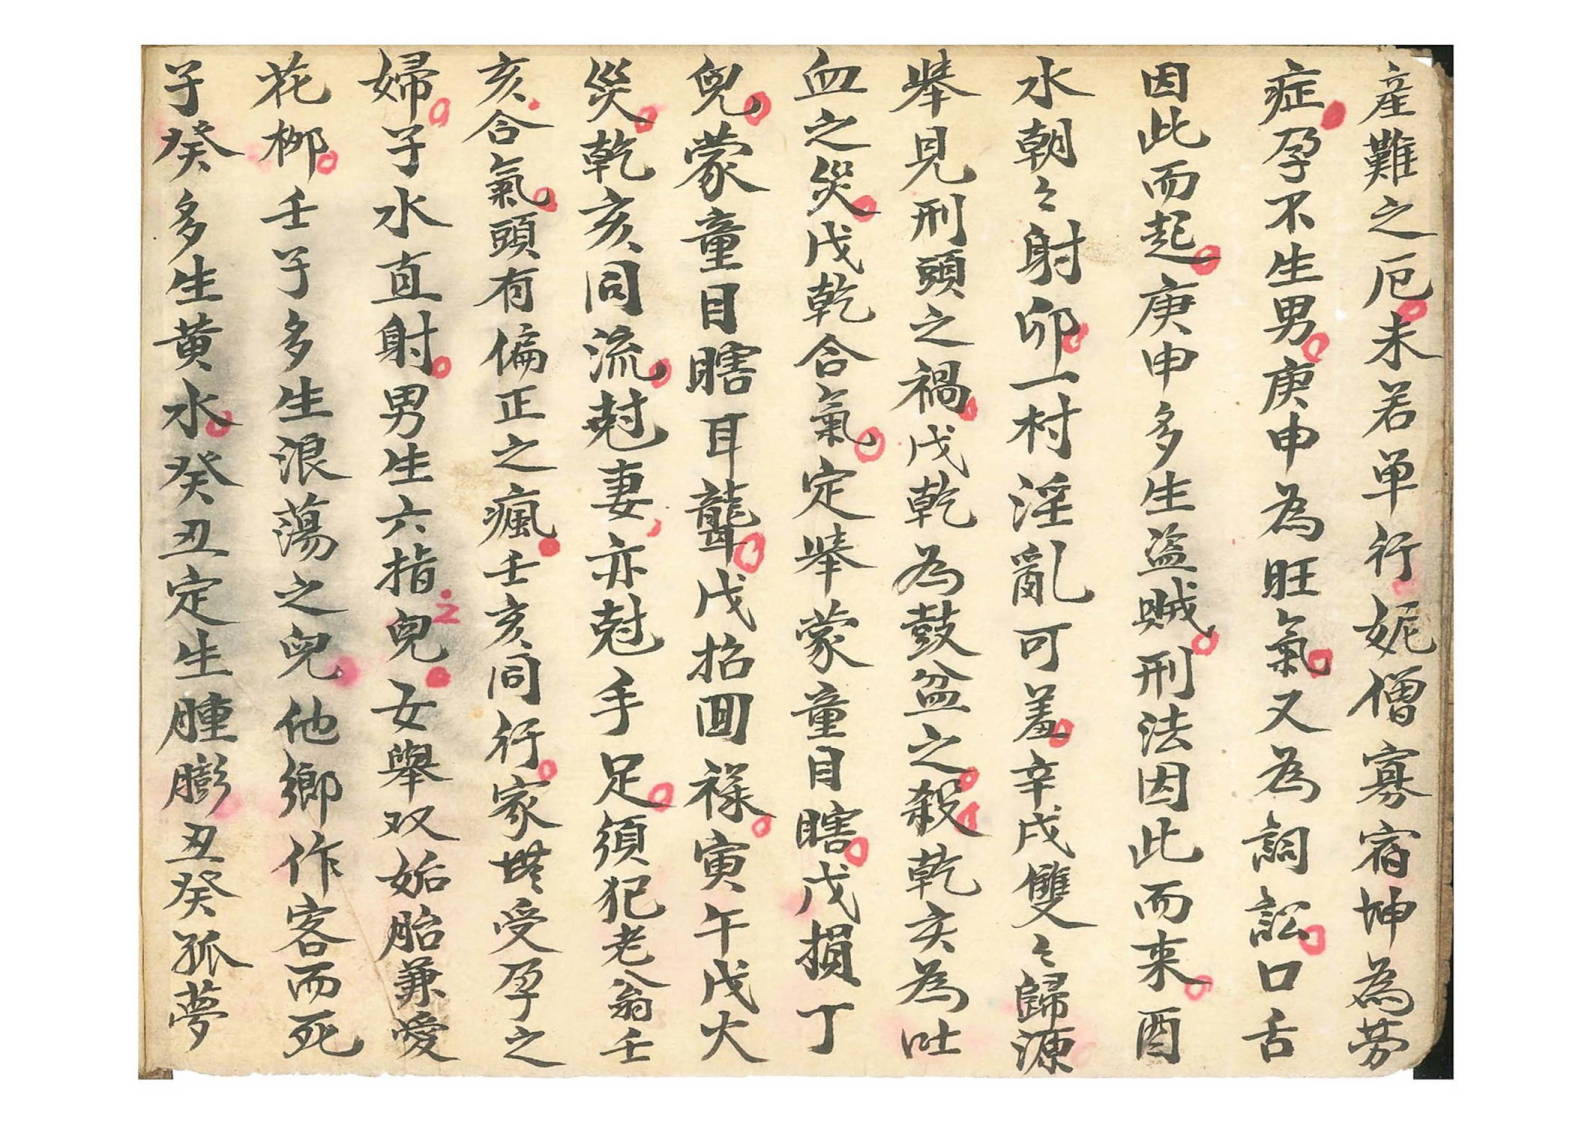 産難之厄未若单行妮僧寡宿坤為劳
症孕不生男庚申為旺氣又為詞訟口舌
因此而起庚申多生盗贼刑法因此而来酉
水朝々射卯一村淫亂可羞辛戌雙々歸源
举見刑頭之禍戊乾為鼓盆之殺乾亥為吐
血之災戊乾合氣定举蒙童目瞎戊損丁
兒蒙童目瞎耳聾戊招囬禄寅午戊火
災乾亥同流尅妻亦尅手足須犯老翁壬
亥合氣頭有偏正之瘋壬亥同行家受孕之
婦子水直射男生六指兒之女舉双妬胎兼愛
花柳壬子多生浪蕩之兒他鄉作客而死
子癸多生黄水癸丑定生腫膨丑癸孤夢